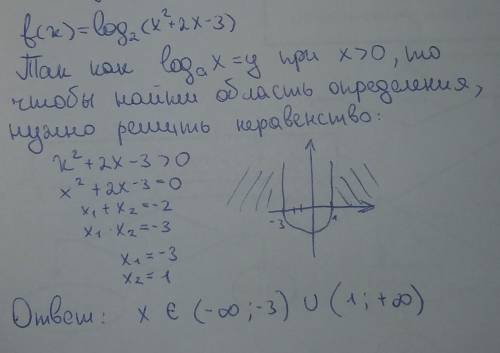 f(x)=log₂(x²+2x-3)
Так как logₐx=y при x>0, то
чтобы найти область определения,
нужно решить неравенство:
x²+2x-3>0
x²+2x-3=0
x₁+x₂=-2
x₁·x₂=-3
x₁=-3
x₂=1
-3 1
Ответ: x ∈ (-∞;-3) ∪ (1;+∞)